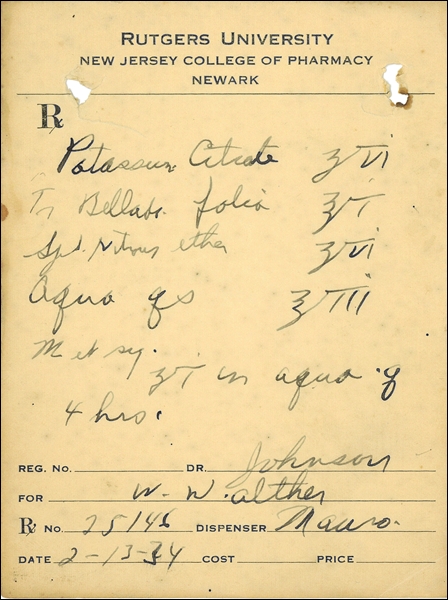 RUTGERS UNIVERSITY
NEW JERSEY COLLEGE OF PHARMACY
NEWARK
℞
Potassium Citrate ʒ vi
Tr Bellad. folia ʒ i
Spt. Nitrous ether ʒ vi
Aqua qs ℥ iii
M et sig.
ʒ i in aqua q
4 hrs.
REG. No. DR. Johnson
FOR W. Walther
℞ No. 25146 DISPENSER Mauro.
DATE 2-13-34 COST PRICE